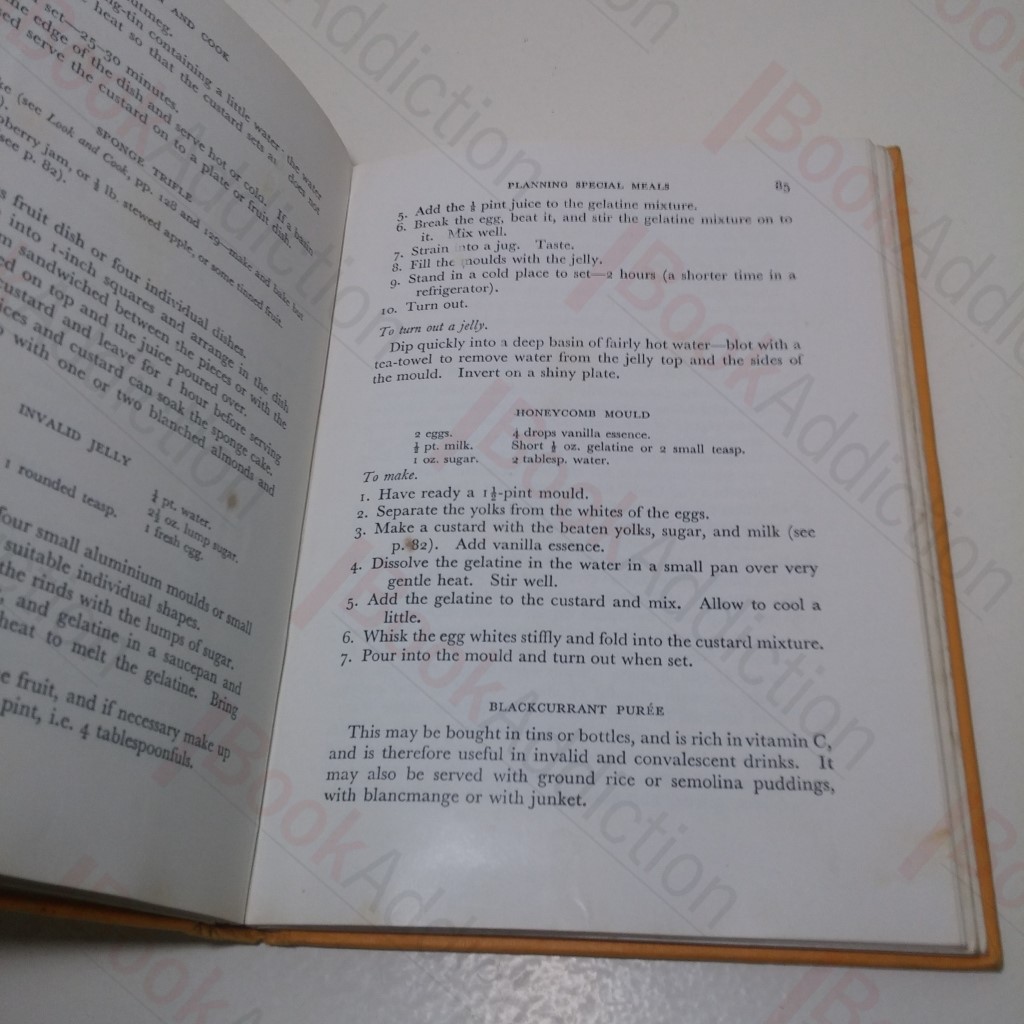 AND COOK
nutmeg.
ng-tin containing a little water; the water
heat so that the custard sets as does not
set—25–30 minutes.
he edge of the dish and serve hot or cold. If a basin
serve the custard on to a plate or fruit dish.
SPONGE TRIFLE
ke (see Look and Cook, pp. 128 and 129—make and bake but
berry jam, or ½ lb. stewed apple, or some tinned fruit.
see p. 82).
fruit dish or four individual dishes.
into 1-inch squares and arrange in the dish
sandwiched between the pieces or with the
on top and the juice poured over.
custard and leave for 1 hour before serving
and custard can soak the sponge cake.
with one or two blanched almonds and
INVALID JELLY
1 rounded teasp.
¼ pt. water.
2½ oz. lump sugar.
1 fresh egg.
four small aluminium moulds or small
suitable individual shapes.
the rinds with the lumps of sugar.
and gelatine in a saucepan and
heat to melt the gelatine. Bring
fruit, and if necessary make up
pint, i.e. 4 tablespoonfuls.
PLANNING SPECIAL MEALS 85
5. Add the ¼ pint juice to the gelatine mixture.
6. Break the egg, beat it, and stir the gelatine mixture on to
it. Mix well.
7. Strain into a jug. Taste.
8. Fill the moulds with the jelly.
9. Stand in a cold place to set—2 hours (a shorter time in a
refrigerator).
10. Turn out.
To turn out a jelly.
Dip quickly into a deep basin of fairly hot water—blot with a
tea-towel to remove water from the jelly top and the sides of
the mould. Invert on a shiny plate.
HONEYCOMB MOULD
2 eggs. 4 drops vanilla essence.
½ pt. milk. Short ½ oz. gelatine or 2 small teasp.
1 oz. sugar. 2 tablesp. water.
To make.
1. Have ready a 1½-pint mould.
2. Separate the yolks from the whites of the eggs.
3. Make a custard with the beaten yolks, sugar, and milk (see
p. 82). Add vanilla essence.
4. Dissolve the gelatine in the water in a small pan over very
gentle heat. Stir well.
5. Add the gelatine to the custard and mix. Allow to cool a
little.
6. Whisk the egg whites stiffly and fold into the custard mixture.
7. Pour into the mould and turn out when set.
BLACKCURRANT PURÉE
This may be bought in tins or bottles, and is rich in vitamin C,
and is therefore useful in invalid and convalescent drinks. It
may also be served with ground rice or semolina puddings,
with blancmange or with junket.
BookAddiction